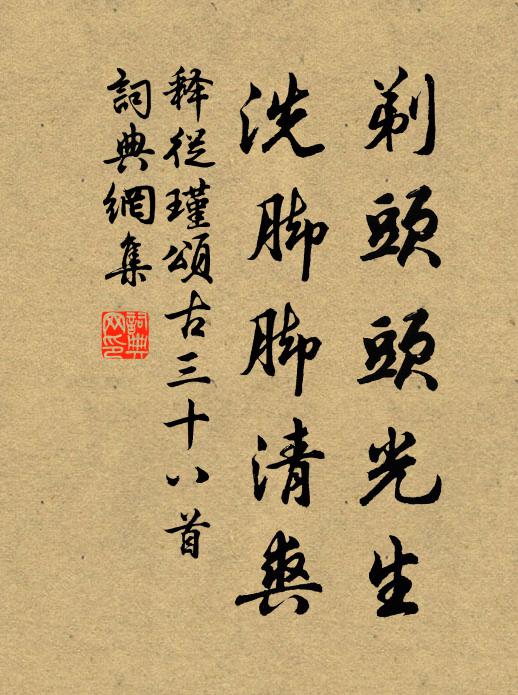 剃頭頭光生
洗脚脚清爽
释從瑾頌古三十八首
詞典網集
詞典網印